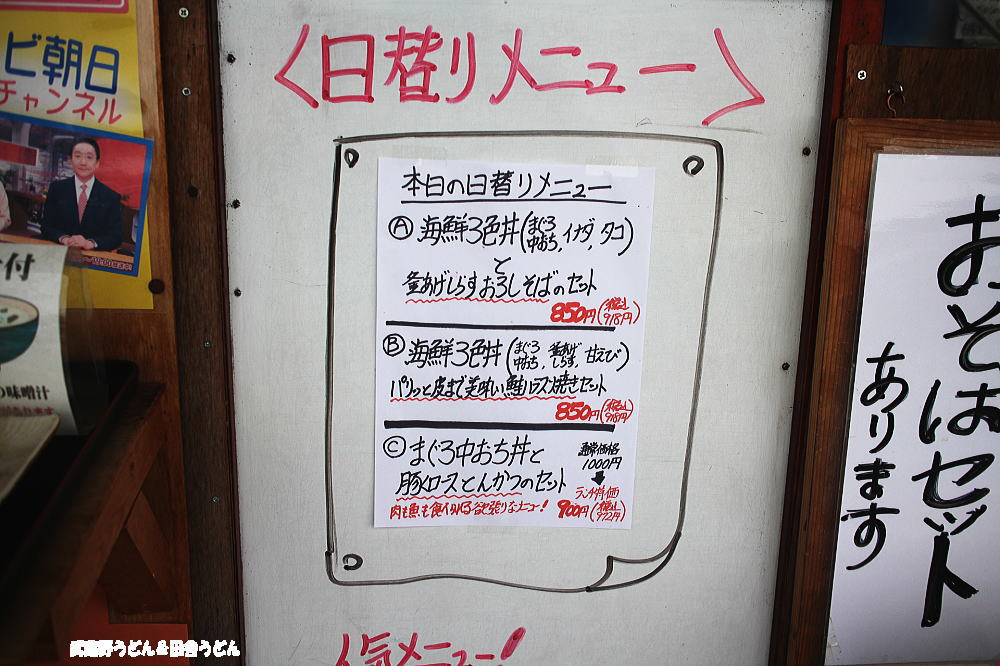 〈日替りメニュー〉
本日の日替りメニュー
Ⓐ海鮮3色丼(まぐろ中おち,イナダ,タコ)
と
釜あげしらすおろしそばのセット
850円(税込918円)
Ⓑ海鮮3色丼(まぐろ中おち,釜あげしらす,甘えび)
パリッと皮まで美味い鮭ハラス焼きセット
850円(税込918円)
Ⓒまぐろ中おち丼と
豚ロースとんかつのセット
通常価格
1000円
ランチ特価
肉も魚も食べれる欲張りなメニュー!
900円(税込972円)
人気メニュー!
おそばセット
あります
ビ朝日
チャンネル
付
の味噌汁
武蔵野うどん&田舎うどん